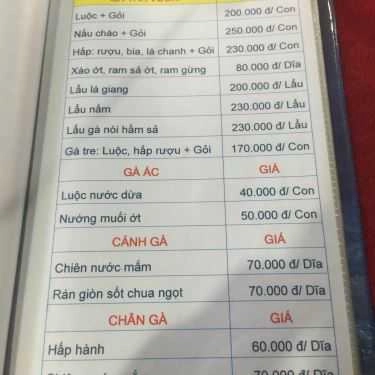 Luộc + Gỏi 200.000 đ/ Con
Nấu cháo + Gỏi 250.000 đ/ Con
Hấp: rượu, bia, lá chanh + Gỏi 230.000 đ/ Con
Xào ớt, ram sả ớt, ram gừng 80.000 đ/ Dĩa
Lẩu lá giang 200.000 đ/ Lẩu
Lẩu nấm 230.000 đ/ Lẩu
Lẩu gà nòi hầm sả 230.000 đ/ Lẩu
Gà tre: Luộc, hấp rượu + Gỏi 170.000 đ/ Con
GÀ ÁC GIÁ
Luộc nước dừa 40.000 đ/ Con
Nướng muối ớt 50.000 đ/ Con
CÁNH GÀ GIÁ
Chiên nước mắm 70.000 đ/ Dĩa
Rán giòn sốt chua ngọt 70.000 đ/ Dĩa
CHÂN GÀ GIÁ
Hấp hành 60.000 đ/ Dĩa
70.000 đ/ Dĩa